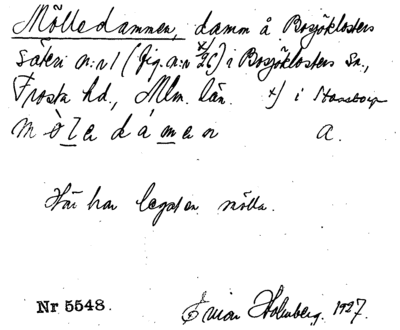 Mölledammen, damm å Bosjöklosters
säteri n:r 1 (fig. n:r x) 26) i Bosjöklosters sn.,
Frosta hd., Mlm. län. x) i Stastorp
mòledámen a.
Här har legat en mölla.
Nr 5548. Ewan Holmberg. 1927.